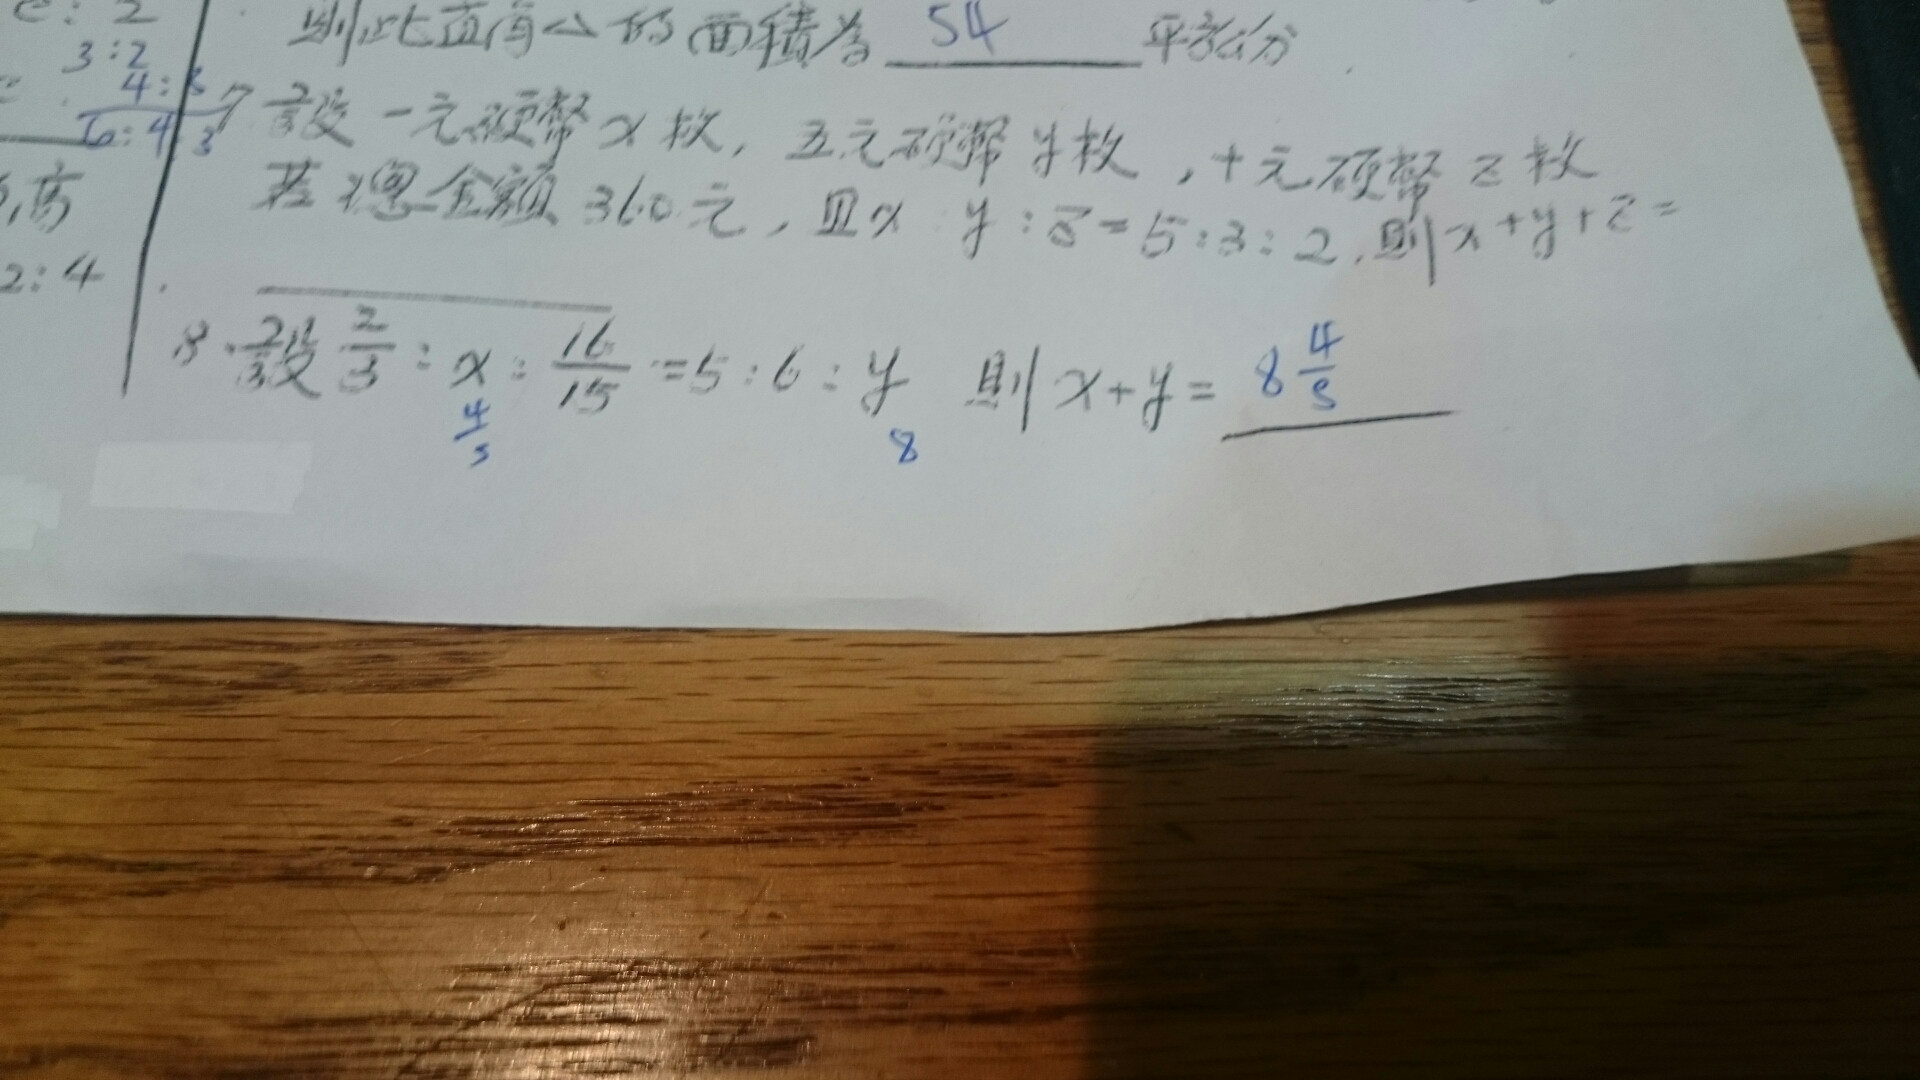 e : 2
3 : 2
4 : 3
6 : 4 : 3
高
2 : 4
則此直角△的面積為 54 平方公分
7 設一元硬幣x枚, 五元硬幣y枚, 十元硬幣z枚
若總金額360元, 且x y : z = 5 : 3 : 2, 則x+y+z=
8. 設 2/3 : x : 16/15 = 5 : 6 : y 則 x+y = 8 4/5
4/5
8